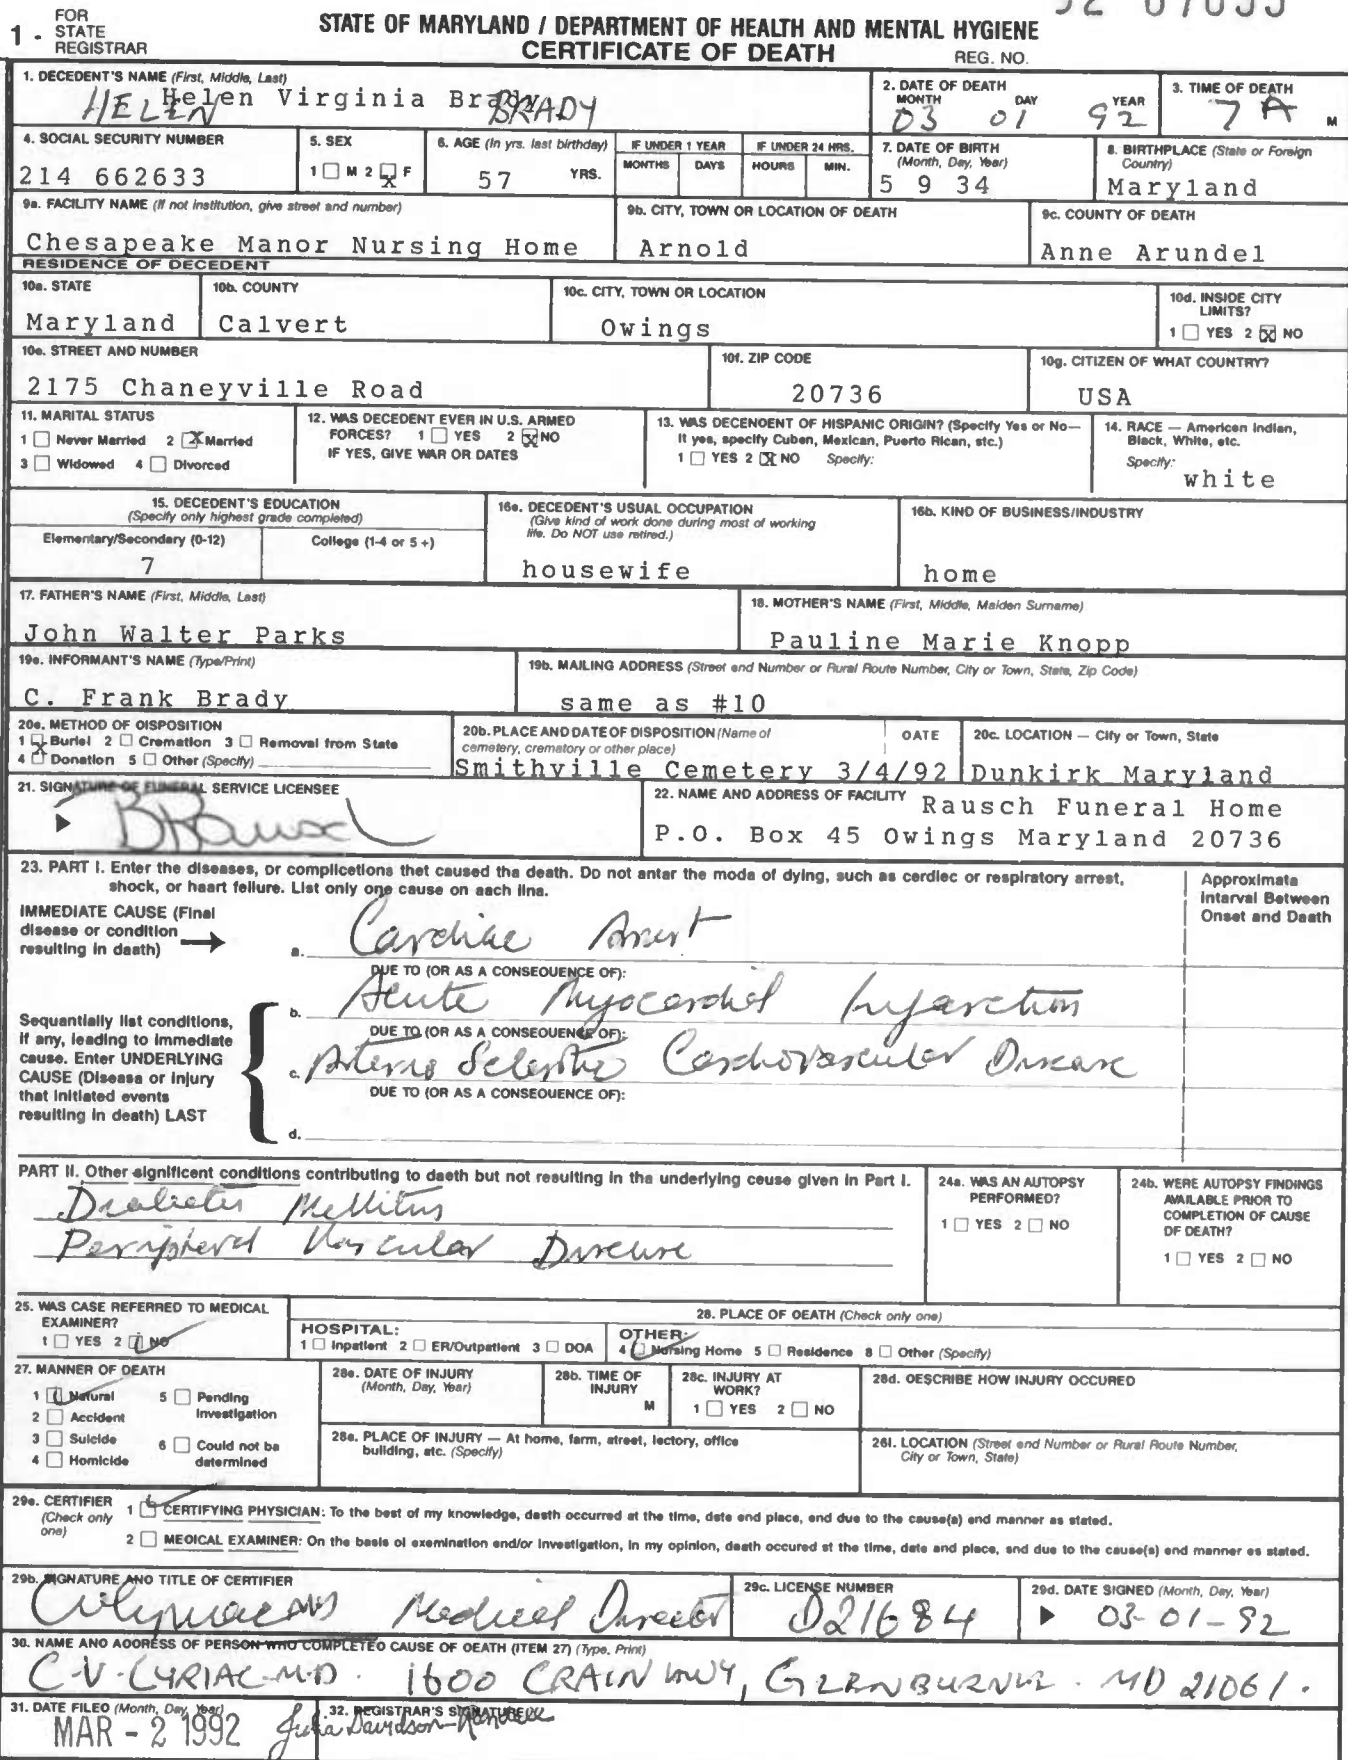 1 - FOR STATE REGISTRAR
STATE OF MARYLAND / DEPARTMENT OF HEALTH AND MENTAL HYGIENE
CERTIFICATE OF DEATH
REG. NO.
1. DECEDENT'S NAME (First, Middle, Last)
Helen Virginia Brady
HELEN BRADY
2. DATE OF DEATH
MONTH DAY YEAR
03 01 92
3. TIME OF DEATH
7 A M
4. SOCIAL SECURITY NUMBER
214 662633
5. SEX
1 M 2 X F
6. AGE (In yrs. last birthday)
57 YRS.
IF UNDER 1 YEAR
MONTHS DAYS
IF UNDER 24 HRS.
HOURS MIN.
7. DATE OF BIRTH (Month, Day, Year)
5 9 34
8. BIRTHPLACE (State or Foreign Country)
Maryland
9a. FACILITY NAME (If not institution, give street and number)
Chesapeake Manor Nursing Home
9b. CITY, TOWN OR LOCATION OF DEATH
Arnold
9c. COUNTY OF DEATH
Anne Arundel
RESIDENCE OF DECEDENT
10a. STATE
Maryland
10b. COUNTY
Calvert
10c. CITY, TOWN OR LOCATION
Owings
10d. INSIDE CITY LIMITS?
1 YES 2 X NO
10e. STREET AND NUMBER
2175 Chaneyville Road
10f. ZIP CODE
20736
10g. CITIZEN OF WHAT COUNTRY?
USA
11. MARITAL STATUS
1 Never Married 2 X Married
3 Widowed 4 Divorced
12. WAS DECEDENT EVER IN U.S. ARMED
FORCES? 1 YES 2 X NO
IF YES, GIVE WAR OR DATES
13. WAS DECENDENT OF HISPANIC ORIGIN? (Specify Yes or No—
If yes, specify Cuban, Mexican, Puerto Rican, etc.)
1 YES 2 X NO Specify:
14. RACE — American Indian,
Black, White, etc.
Specify:
white
15. DECEDENT'S EDUCATION
(Specify only highest grade completed)
Elementary/Secondary (0-12) College (1-4 or 5 +)
7
16a. DECEDENT'S USUAL OCCUPATION
(Give kind of work done during most of working
life. Do NOT use retired.)
housewife
16b. KIND OF BUSINESS/INDUSTRY
home
17. FATHER'S NAME (First, Middle, Last)
John Walter Parks
18. MOTHER'S NAME (First, Middle, Maiden Surname)
Pauline Marie Knopp
19a. INFORMANT'S NAME (Type/Print)
C. Frank Brady
19b. MAILING ADDRESS (Street and Number or Rural Route Number, City or Town, State, Zip Code)
same as #10
20a. METHOD OF DISPOSITION
1 X Burial 2 Cremation 3 Removal from State
4 Donation 5 Other (Specify)
20b. PLACE AND DATE OF DISPOSITION (Name of DATE
cemetery, crematory or other place)
Smithville Cemetery 3/4/92
20c. LOCATION — City or Town, State
Dunkirk Maryland
21. SIGNATURE OF FUNERAL SERVICE LICENSEE
22. NAME AND ADDRESS OF FACILITY Rausch Funeral Home
P.O. Box 45 Owings Maryland 20736
23. PART I. Enter the diseases, or complications that caused the death. Do not enter the mode of dying, such as cardiac or respiratory arrest,
shock, or heart failure. List only one cause on each line.
Approximate
Interval Between
Onset and Death
IMMEDIATE CAUSE (Final
disease or condition
resulting in death)
a. Cardiac Arrest
DUE TO (OR AS A CONSEQUENCE OF):
b. Acute Myocardial Infarction
DUE TO (OR AS A CONSEQUENCE OF):
c. Arterio Sclerotic Cardiovascular Disease
DUE TO (OR AS A CONSEQUENCE OF):
d.
Sequentially list conditions,
if any, leading to immediate
cause. Enter UNDERLYING
CAUSE (Disease or injury
that initiated events
resulting in death) LAST
PART II. Other significant conditions contributing to death but not resulting in the underlying cause given in Part I.
Diabetes Mellitus
Peripheral Vascular Disease
24a. WAS AN AUTOPSY
PERFORMED?
1 YES 2 NO
24b. WERE AUTOPSY FINDINGS
AVAILABLE PRIOR TO
COMPLETION OF CAUSE
OF DEATH?
1 YES 2 NO
25. WAS CASE REFERRED TO MEDICAL
EXAMINER?
1 YES 2 NO
26. PLACE OF DEATH (Check only one)
HOSPITAL:
1 Inpatient 2 ER/Outpatient 3 DOA
OTHER:
4 Nursing Home 5 Residence 8 Other (Specify)
27. MANNER OF DEATH
1 Natural 5 Pending Investigation
2 Accident
3 Suicide 6 Could not be determined
4 Homicide
28a. DATE OF INJURY
(Month, Day, Year)
28b. TIME OF
INJURY
M
28c. INJURY AT
WORK?
1 YES 2 NO
28d. DESCRIBE HOW INJURY OCCURED
28e. PLACE OF INJURY — At home, farm, street, factory, office
building, etc. (Specify)
28f. LOCATION (Street and Number or Rural Route Number,
City or Town, State)
29a. CERTIFIER
(Check only
one)
1 CERTIFYING PHYSICIAN: To the best of my knowledge, death occurred at the time, date and place, and due to the cause(s) and manner as stated.
2 MEDICAL EXAMINER: On the basis of examination and/or investigation, in my opinion, death occured at the time, date and place, and due to the cause(s) and manner as stated.
29b. SIGNATURE AND TITLE OF CERTIFIER
Medical Director
29c. LICENSE NUMBER
D21684
29d. DATE SIGNED (Month, Day, Year)
03-01-92
30. NAME AND ADDRESS OF PERSON WHO COMPLETED CAUSE OF DEATH (ITEM 27) (Type, Print)
C.V. CYRIAC M.D. 1600 CRAIN HWY, GLENBURNIE. MD 21061.
31. DATE FILED (Month, Day, Year)
MAR - 2 1992
32. REGISTRAR'S SIGNATURE
Julia Davidson-Randall